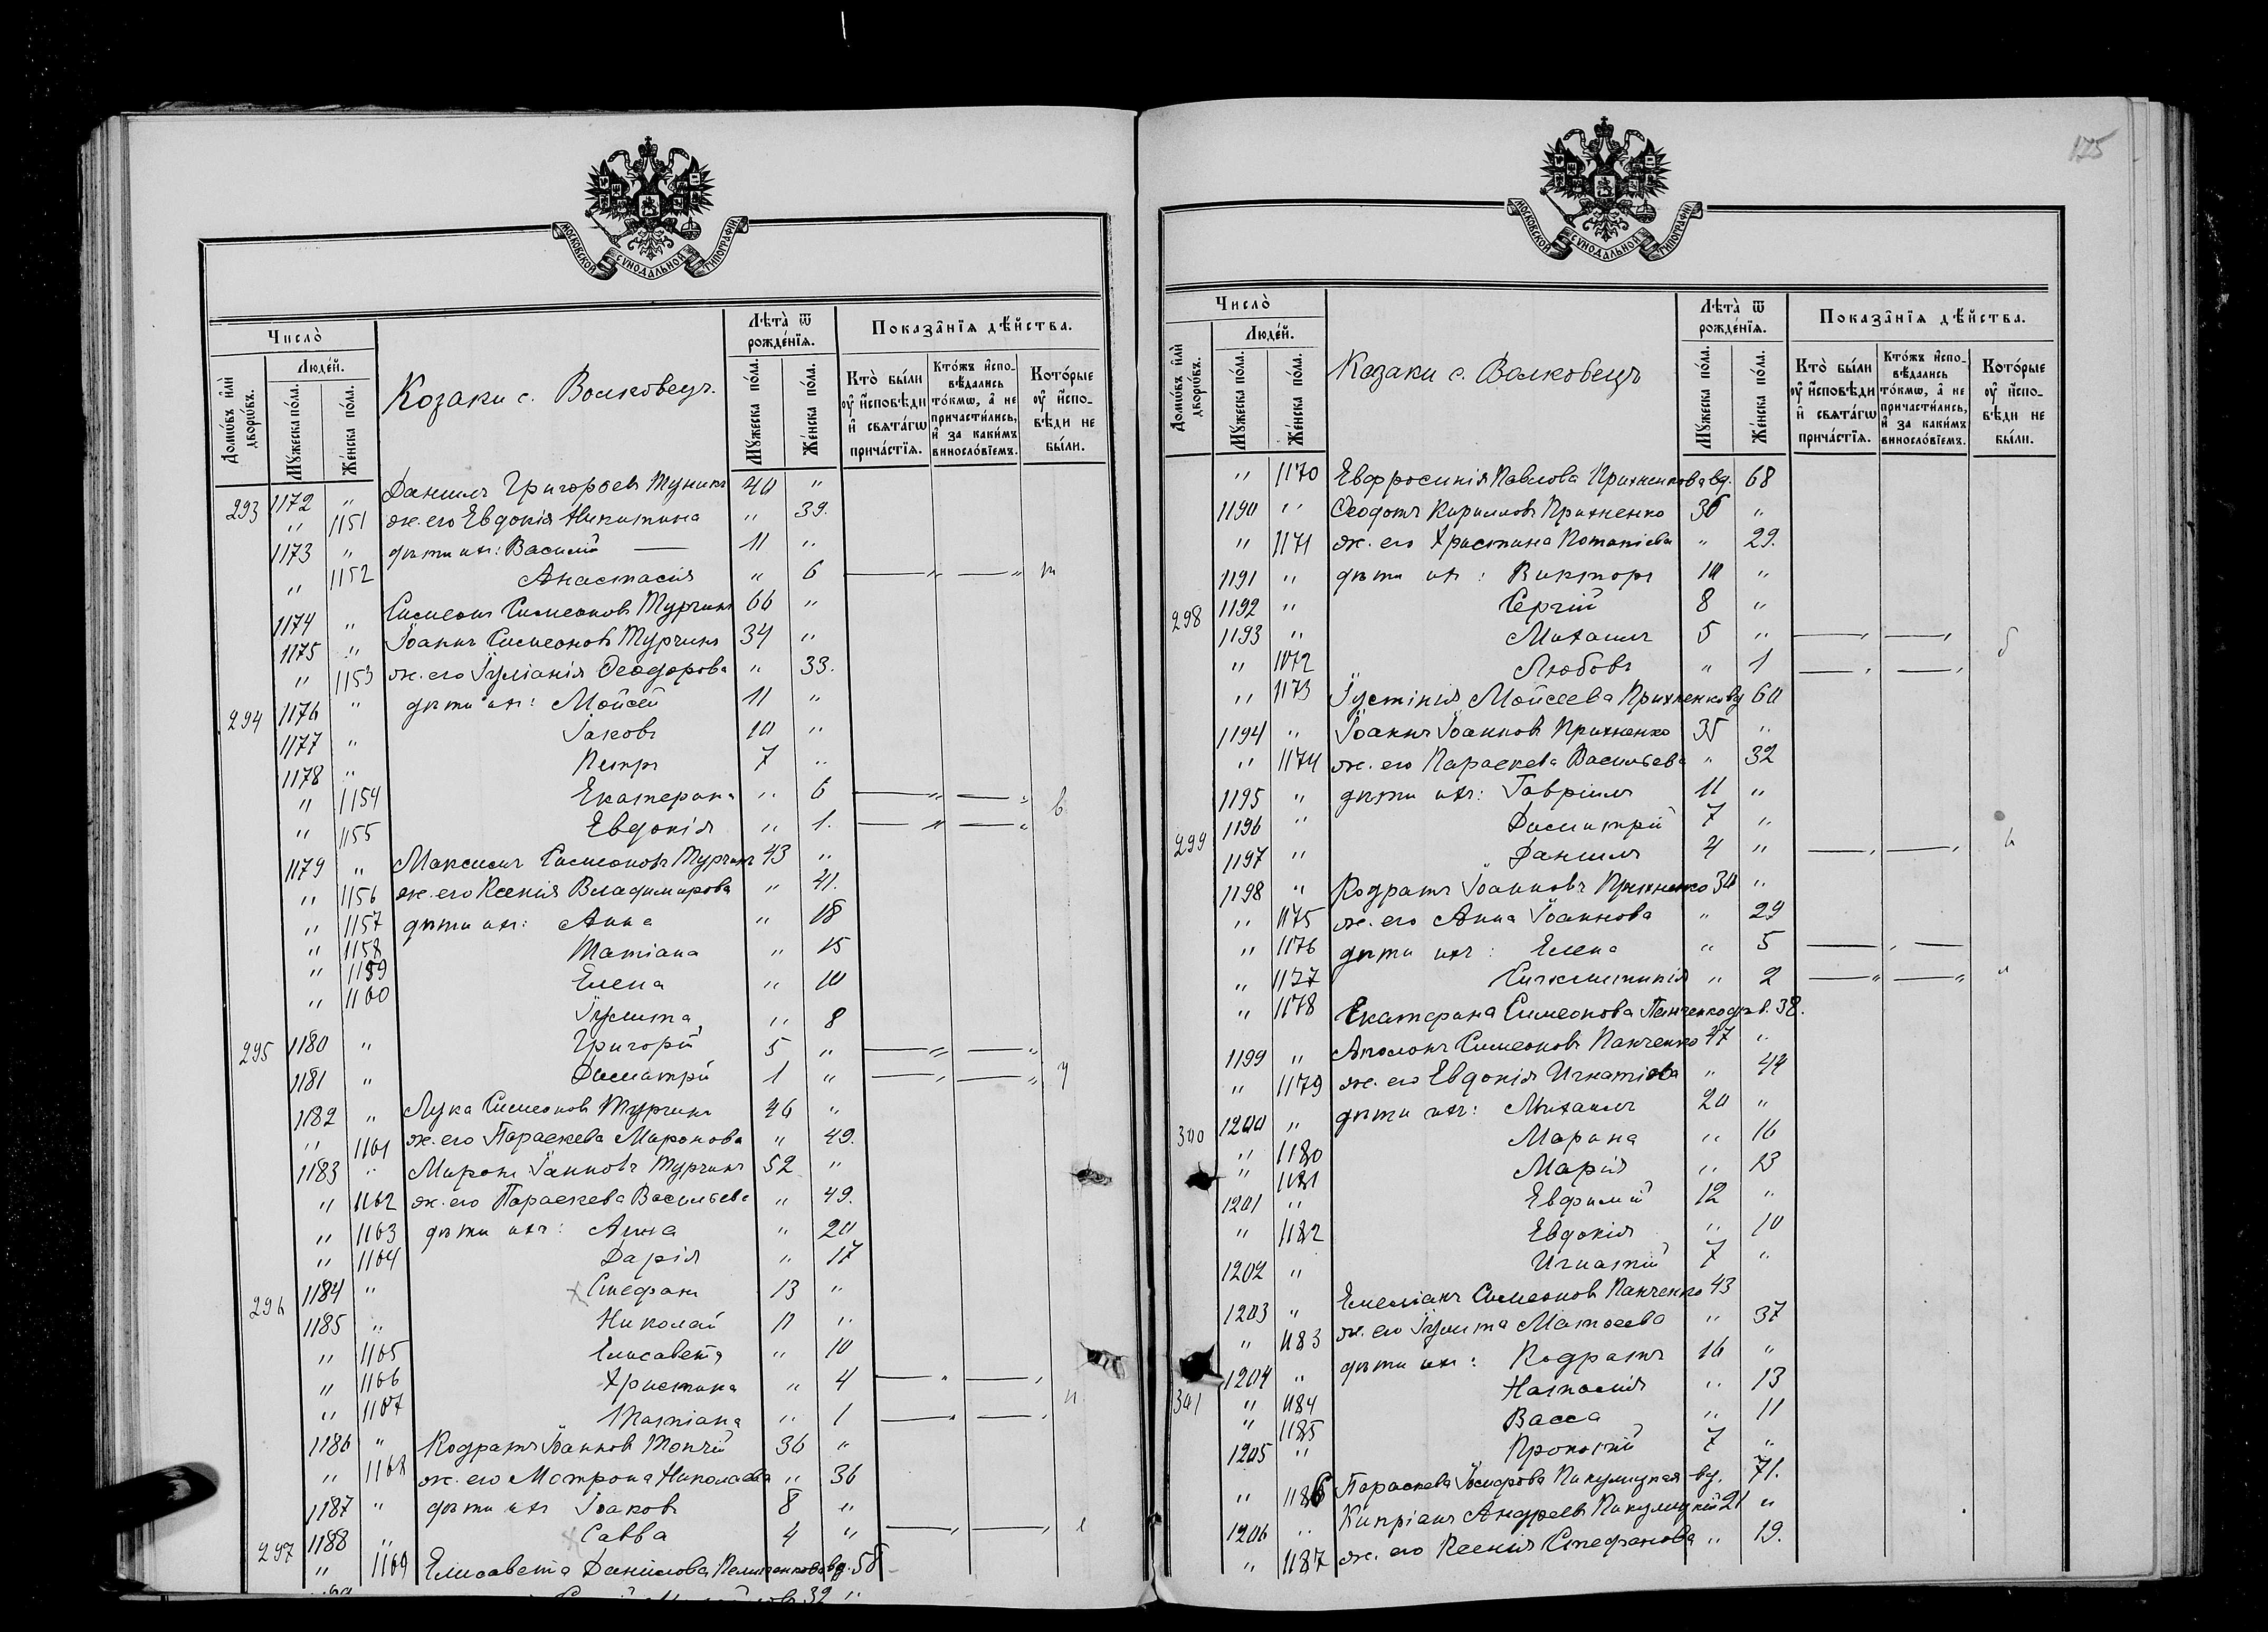 МОСКОВСКОЙ СУНОДАЛЬНОЙ ТИПОГРАФІИ
Число̀
Люде́й.
Домѡ́въ и҆лѝ дворѡ́въ.
Мꙋ́жеска по́ла.
Же́нска по́ла.
Козаки с. Волковецъ.
Лѣта̀ ѿ рожде́нїѧ.
Мꙋ́жеска по́ла.
Же́нска по́ла.
Показа̑нїѧ дѣ́йства.
Кто̀ бы́ли оу҆ и҆́сповѣди и҆ свѧта́гѡ прича́стїѧ.
Кто́жъ и҆спо-вѣ́дались то́кмѡ, а҆ не причасти́лись, и҆ за каки́мъ винослові́емъ.
Кото́рые оу҆ и҆́спо-вѣди не бы́ли.
293 1172 " Даніилъ Григорьевъ Туникъ 40 "
" 1151 ж. его Евдокія Никитина " 39.
1173 " дѣти ихъ: Василій — 11 "
" 1152 Анастасія " 6
1174 " Симеонъ Симеоновъ Турчинъ 66 "
1175 " Іоаннъ Симеоновъ Турчинъ 34 "
" 1153 ж. его Іуліанія Ѳеодорова " 33.
294 1176 " дѣти ихъ: Мойсей 11 "
1177 " Іаковъ 10 "
1178 " Петръ 7 "
" 1154 Екатерина " 6
" 1155 Евдокія " 1.
1179 " Максимъ Симеоновъ Турчинъ 43 "
" 1156 ж. его Ксенія Владимирова " 41.
" 1157 дѣти ихъ: Анна " 18
" 1158 Татіана " 15
" 1159 Елена " 10
" 1160 Іулита " 8
295 1180 " Григорій 5 "
1181 " Димитрій 1 "
1182 " Лука Симеоновъ Турчинъ 46 "
" 1161 ж. его Параскева Миронова " 49.
1183 " Миронъ Іоанновъ Турчинъ 52 "
" 1162 ж. его Параскева Васильева " 49.
" 1163 дѣти ихъ: Анна " 20
" 1164 Дарія " 17
296 1184 " Стефанъ 13 "
1185 " Николай 11 "
" 1165 Елисавета " 10
" 1166 Христина " 4
" 1167 Татіана " 1
1186 " Кодратъ Іоанновъ Топчій 36 "
" 1168 ж. его Матрона Николаева " 36
1187 " дѣти ихъ Іаковъ 8 "
297 1188 " Савва 4 "
" 1169 Елисавета Даниілова вд. 58
32 "
175
МОСКОВСКОЙ СУНОДАЛЬНОЙ ТИПОГРАФІИ
Число̀
Люде́й.
Домѡ́въ и҆лѝ дворѡ́въ.
Мꙋ́жеска по́ла.
Же́нска по́ла.
Козаки с. Волковецъ
Лѣта̀ ѿ рожде́нїѧ.
Мꙋ́жеска по́ла.
Же́нска по́ла.
Показа̑нїѧ дѣ́йства.
Кто̀ бы́ли оу҆ и҆́сповѣди и҆ свѧта́гѡ прича́стїѧ.
Кто́жъ и҆спо-вѣ́дались то́кмѡ, а҆ не причасти́лись, и҆ за каки́мъ винослові́емъ.
Кото́рые оу҆ и҆́спо-вѣди не бы́ли.
" 1170 Евфросинія Павлова Прихненкова вд. 68
1190 " Ѳеодотъ Кирилловъ Прихненко 36 "
" 1171 ж. его Христина Потапіева " 29.
1191 " дѣти ихъ: Викторъ 10 "
298 1192 " Сергій 8 "
1193 " Михаилъ 5 "
" 1072 Любовь " 1
" 1173 Іустинія Мойсеева Прихненко вд 60
1194 " Іоаннъ Іоанновъ Прихненко 35 "
" 1174 ж. его Параскева Васильева " 32
1195 " дѣти ихъ: Гавріилъ 11 "
1196 " Димитрій 7 "
299 1197 " Даніилъ 4 "
1198 " Кодратъ Іоанновъ Прихненко 30 "
" 1175 ж. его Анна Іоаннова " 29
" 1176 дѣти ихъ: Елена " 5
" 1177 Синклитикія " 2
" 1178 Екатерина Симеонова Панченко 38.
1199 " Аполонъ Симеоновъ Панченко 47 "
" 1179 ж. его Евдокія Игнатіева " 44
300 1200 " дѣти ихъ: Михаилъ 20 "
" 1180 Марина " 16
" 1181 Марія " 13
1201 " Евфимій 12 "
" 1182 Евдокія " 10
1202 " Игнатій 7 "
1203 " Емеліанъ Симеоновъ Панченко 43
" 1183 ж. его Іулита Матѳеева " 37
1204 " дѣти ихъ: Кодратъ 16 "
301 " 1184 Наталія " 13
" 1185 Васса " 11
1205 " Прокопій 7 "
" 1186 Параскева Пикулицкая вд. 71.
1206 " Кипріанъ Андреевъ Пикулицкій 21 "
" 1187 ж. его Ксенія Стефанова " 19.